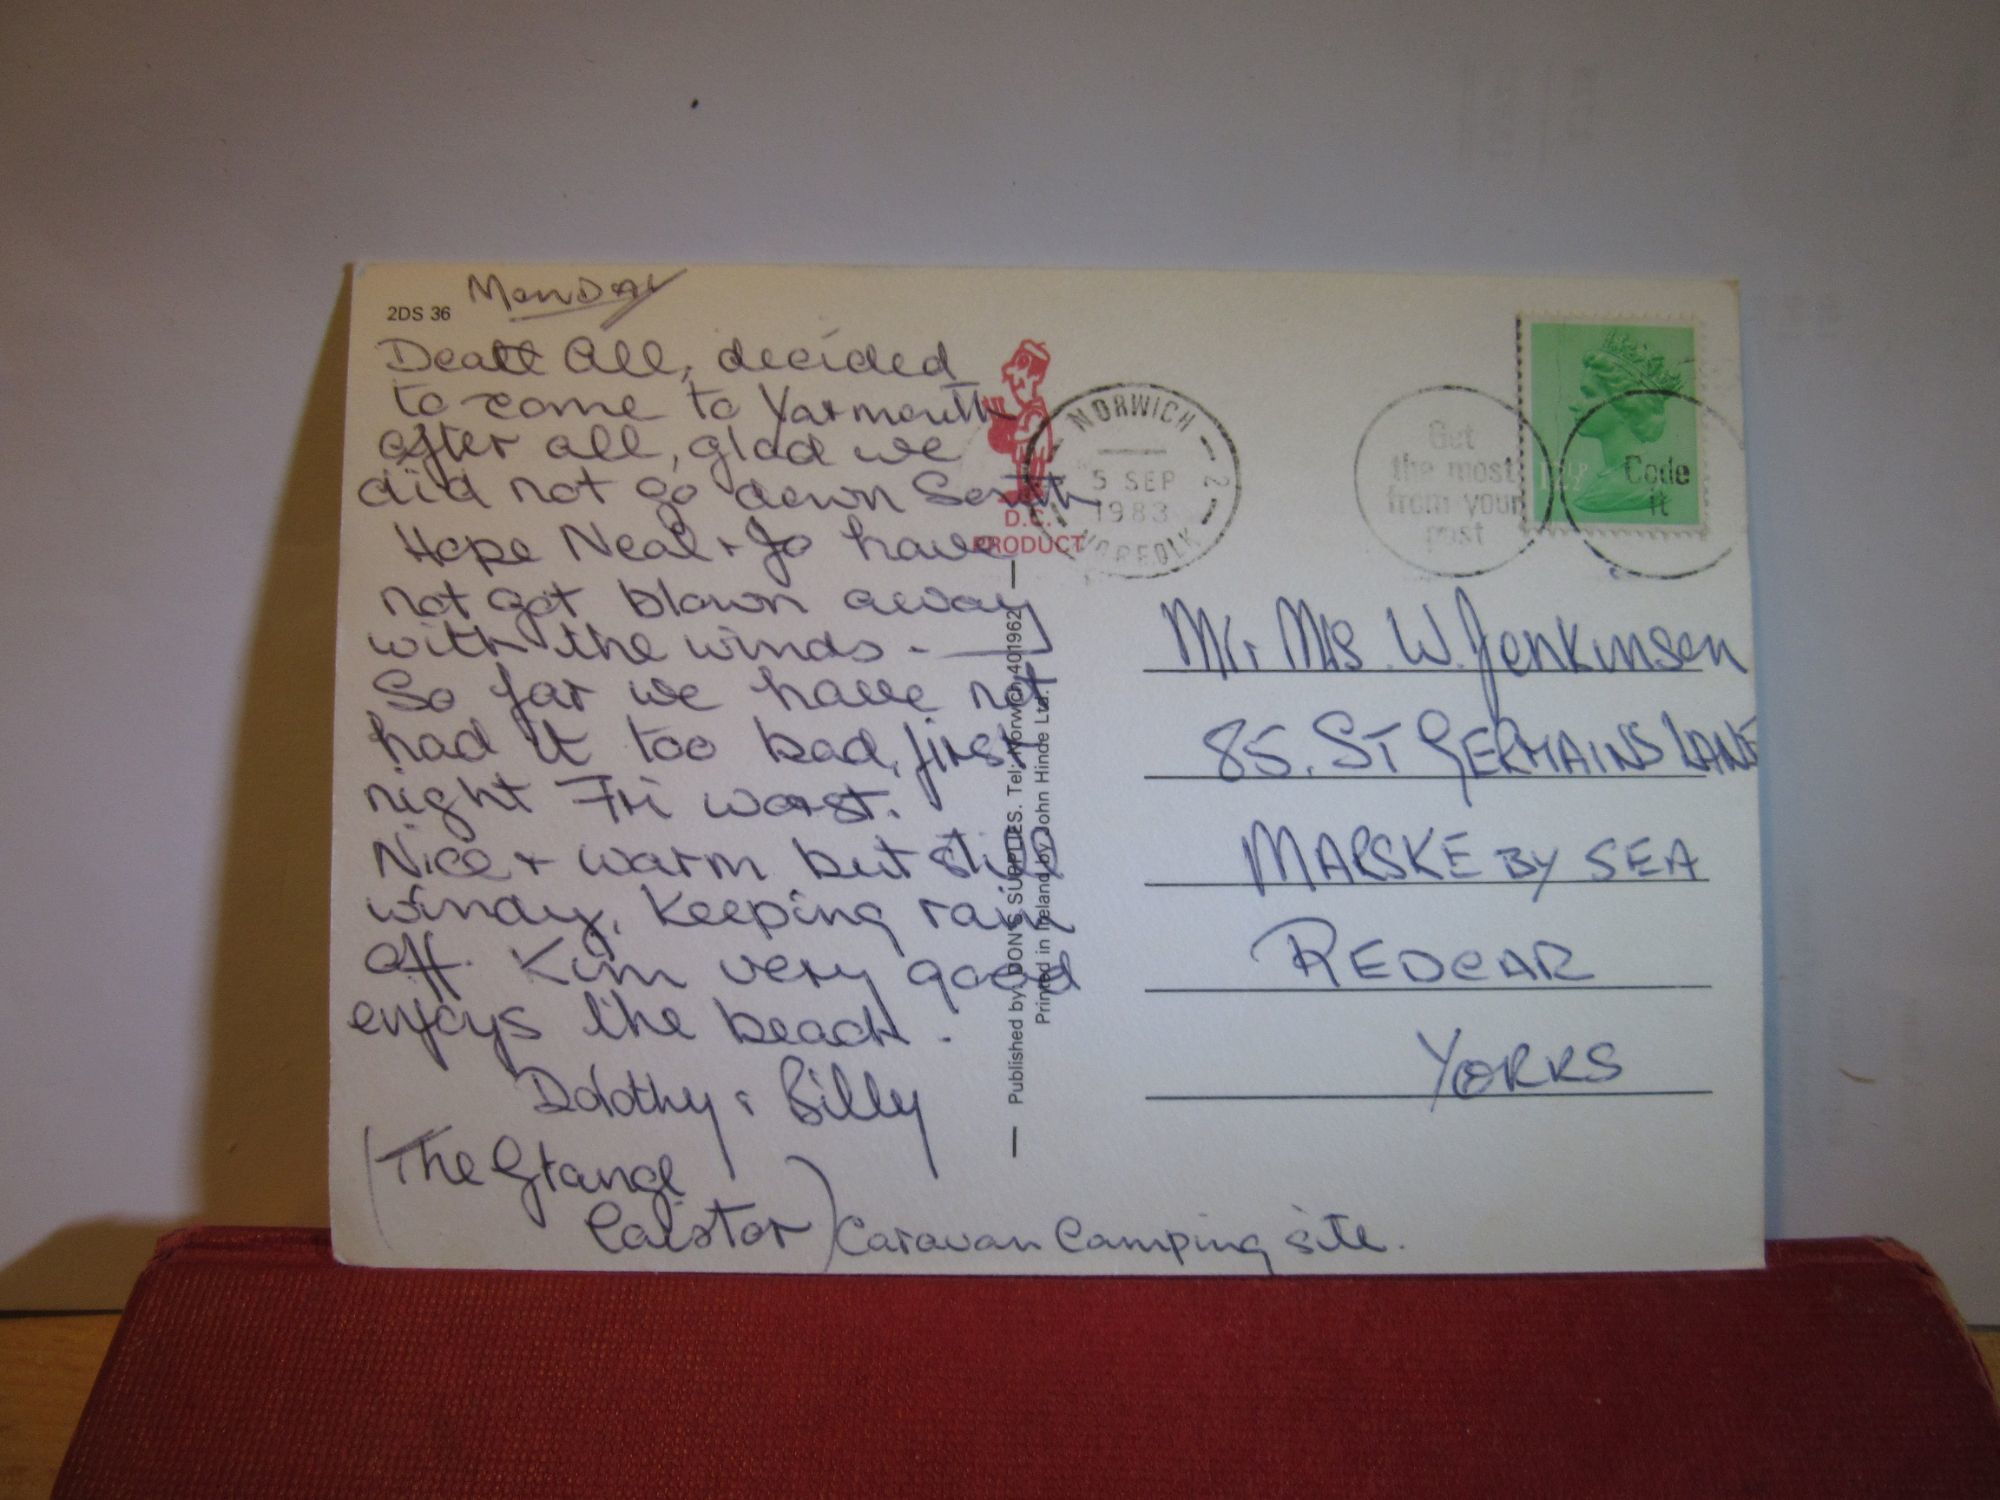 2DS 36
Monday
Dear All, decided
to come to Yarmouth
after all, glad we
did not go down South
Hope Neal + Jo have
not got blown away
with the winds.
So far we have not
had it too bad, first
night Fri worst.
Nice + warm but still
windy, keeping rain
off. Kim very good
enjoys the beach.
Dorothy & Billy
(The Grange
Caistor) Caravan Camping site.
D.C.
PRODUCT
Published by: DON'S SUPPLIES. Tel: Norwich 401962
Printed in Ireland by John Hinde Ltd.
NORWICH
5 SEP
1983
NORFOLK
2
Get
the most
from your
post
Code
it
12½P
Mr. Mrs. W. Jenkinson
85. ST GERMAINS LANE
MARSKE BY SEA
REDCAR
YORKS